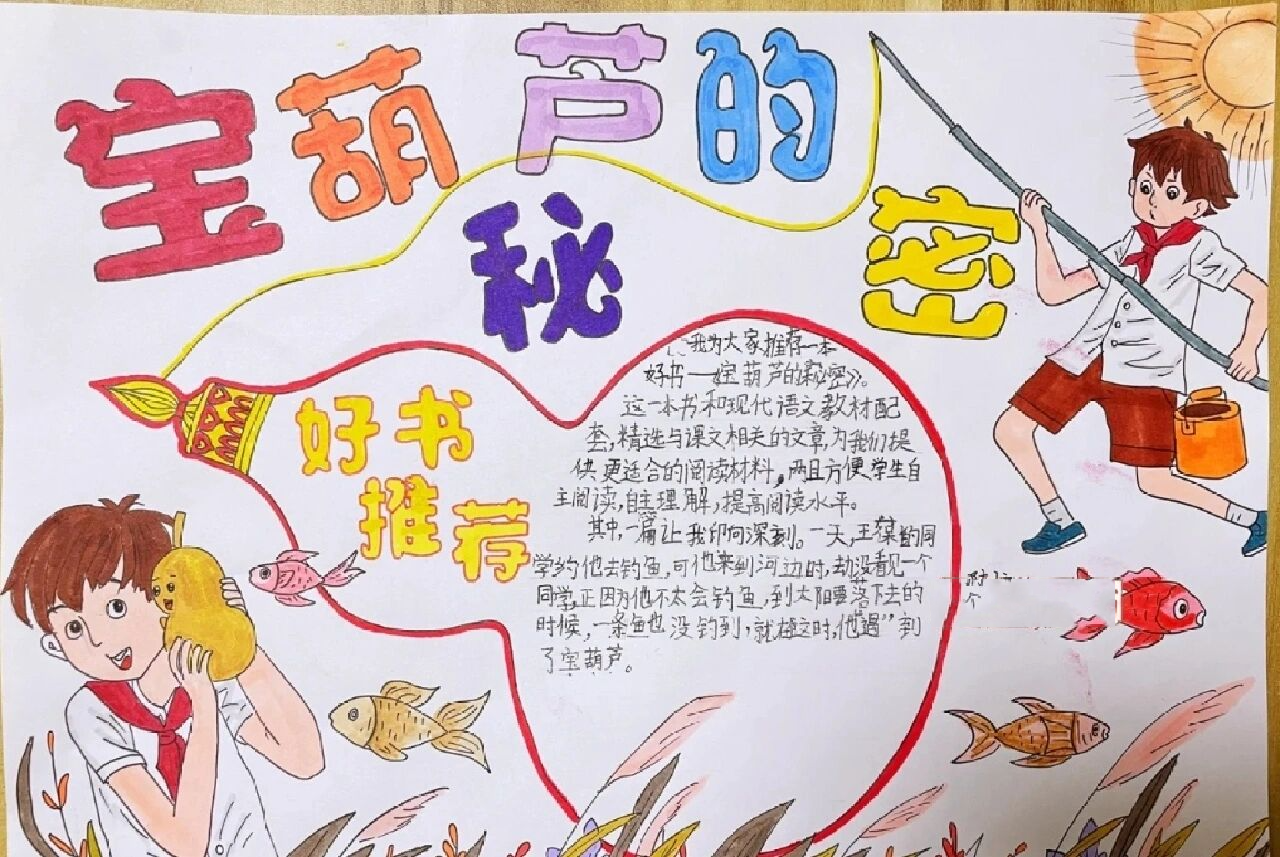 宝葫芦的
秘密
好书
推荐
我为大家推荐一本
好书——《宝葫芦的秘密》。
这一本书和现代语文教材配
套,精选与课文相关的文章,为我们提
供更适合的阅读材料,两且方便学生自
主阅读,自主理解,提高阅读水平。
其中,一篇让我印向深刻。一天,王葆的同
学约他去钓鱼,可他来到河边时,却没看见一个
同学,正因为他不太会钓鱼,到太阳要落下去的
时候,一条鱼也没钓到,就在这时,他“遇”到
了宝葫芦。
个